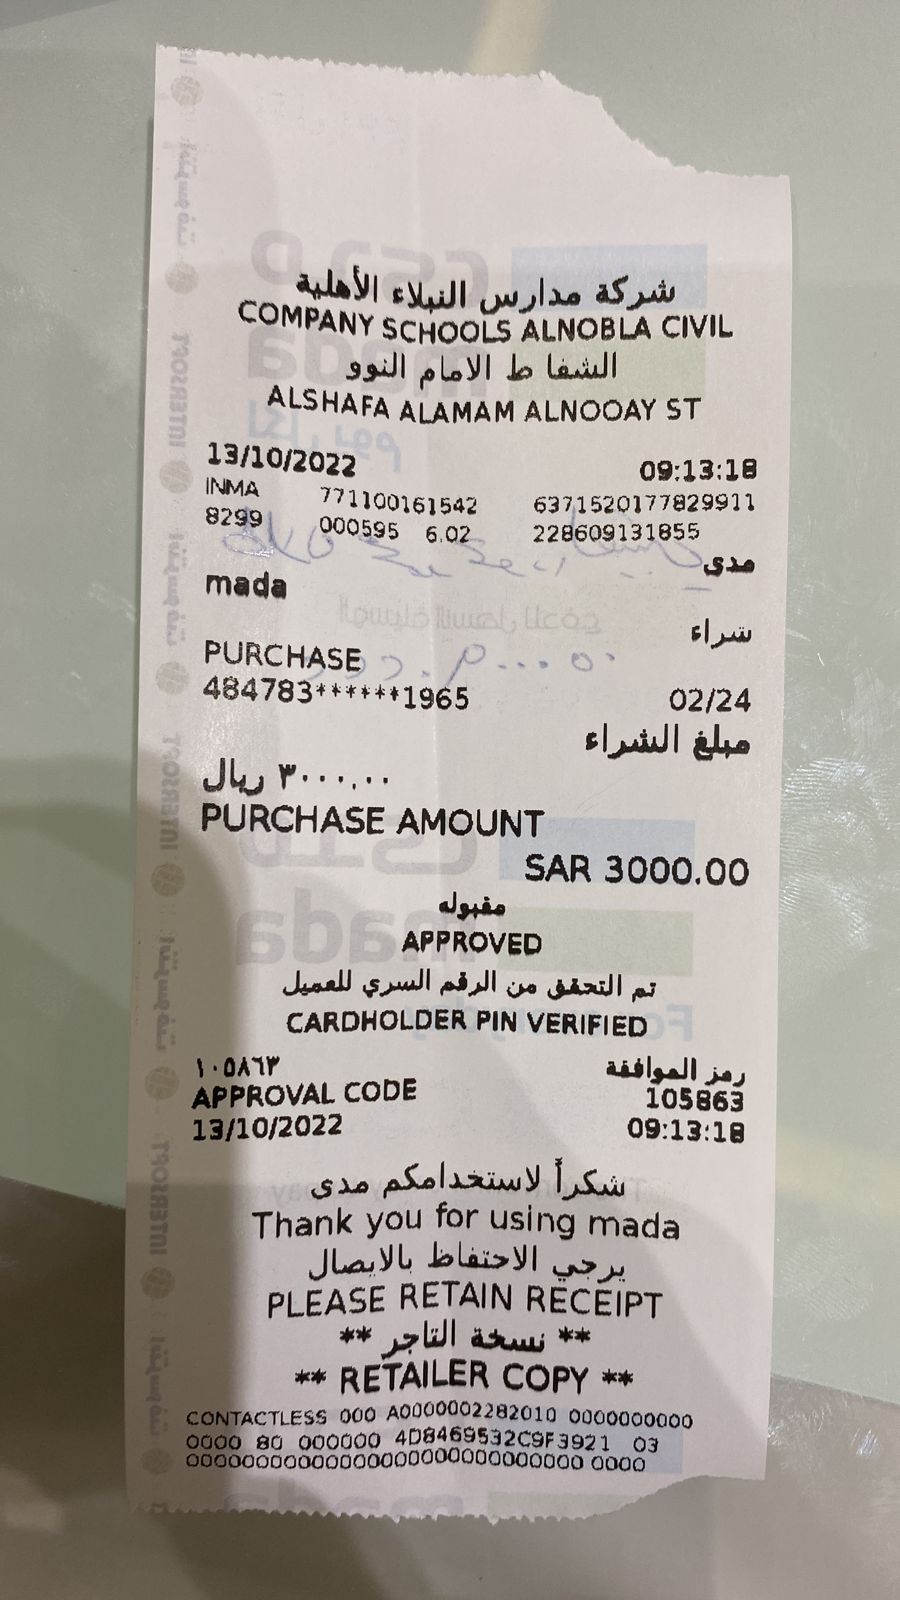 شركة مدارس النبلاء الأهلية
COMPANY SCHOOLS ALNOBLA CIVIL
الشفا ط الامام النوو
ALSHAFA ALAMAM ALNOOAY ST
13/10/2022 09:13:18
INMA 771100161542 6371520177829911
8299 000595 6.02 228609131855
مدى
mada
شراء
PURCHASE
484783******1965 02/24
مبلغ الشراء
٣٠٠٠.٠٠ ريال
PURCHASE AMOUNT
SAR 3000.00
مقبوله
APPROVED
تم التحقق من الرقم السري للعميل
CARDHOLDER PIN VERIFIED
١٠٥٨٦٣ رمز الموافقة
APPROVAL CODE 105863
13/10/2022 09:13:18
شكراً لاستخدامكم مدى
Thank you for using mada
يرجي الاحتفاظ بالايصال
PLEASE RETAIN RECEIPT
** نسخة التاجر **
** RETAILER COPY **
CONTACTLESS 000 A0000002282010 0000000000
0000 80 000000 4D8469532C9F3921 03